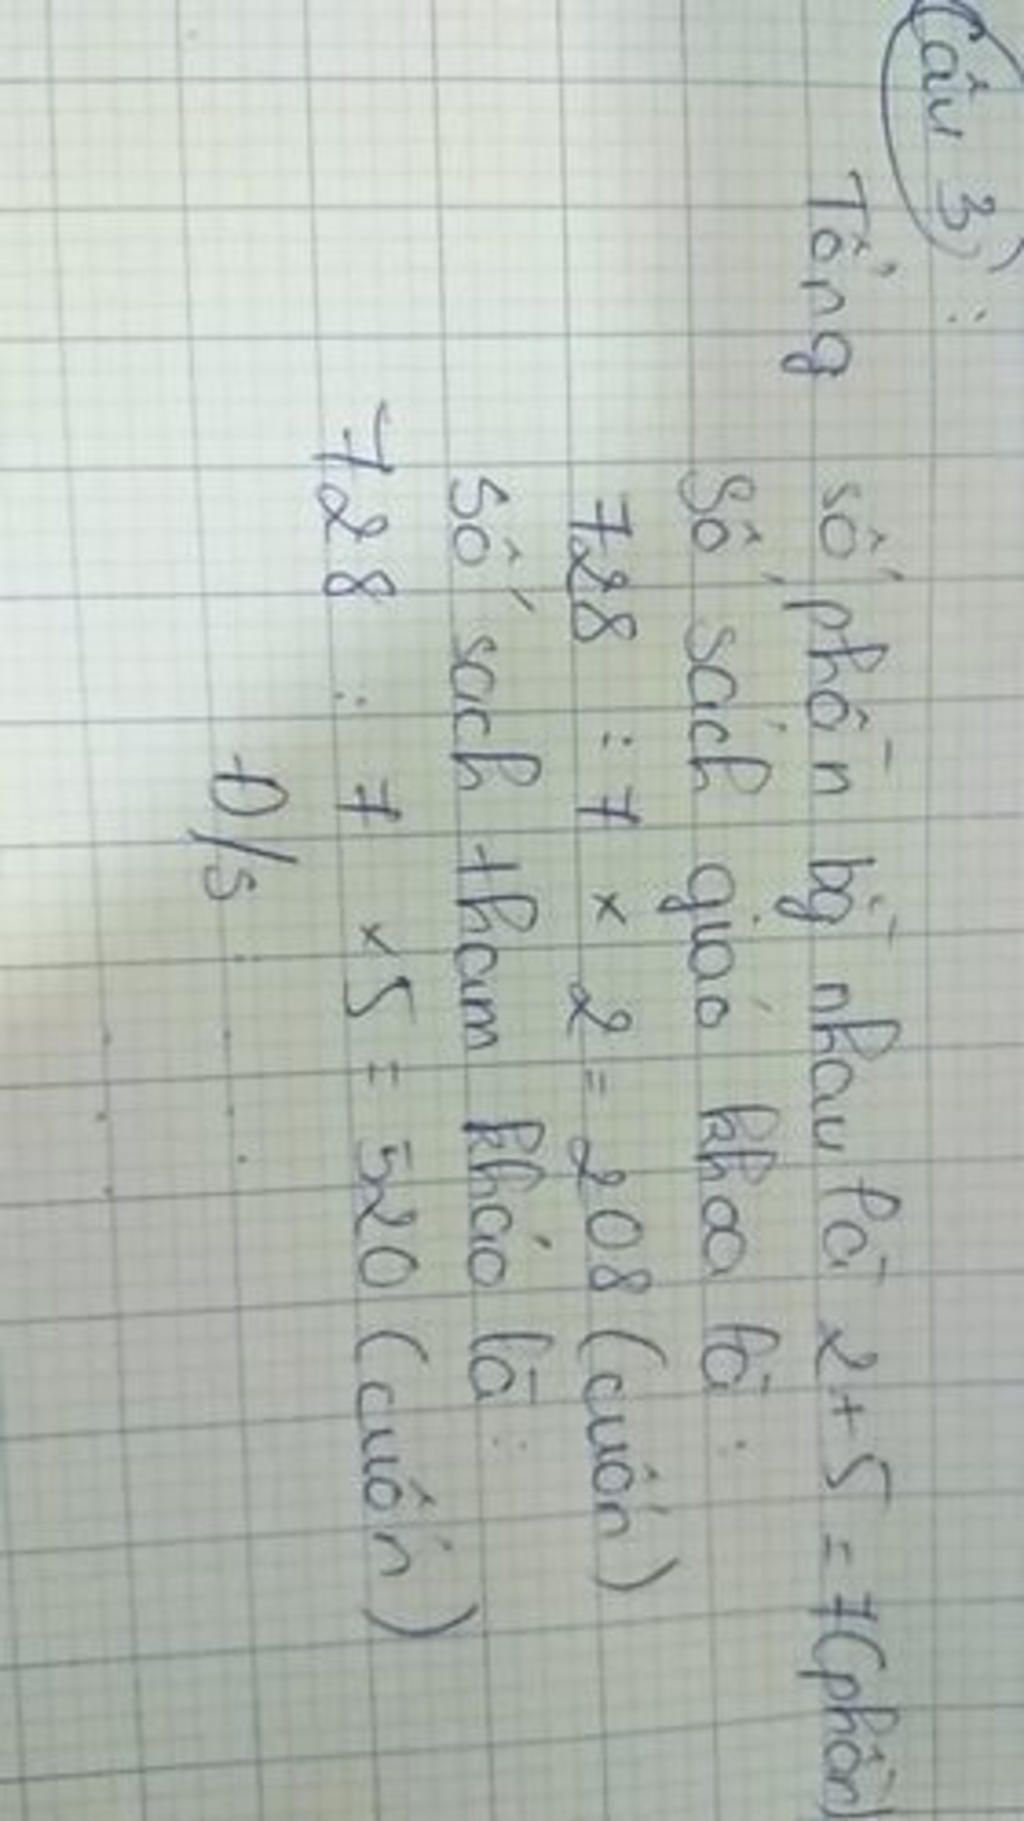 Câu 3) :
Tổng số phần bằng nhau là 2 + 5 = 7 (phần)
Số sách giáo khoa là :
728 : 7 x 2 = 208 (cuốn)
Số sách tham khảo là :
728 : 7 x 5 = 520 (cuốn)
Đ/s : . . .